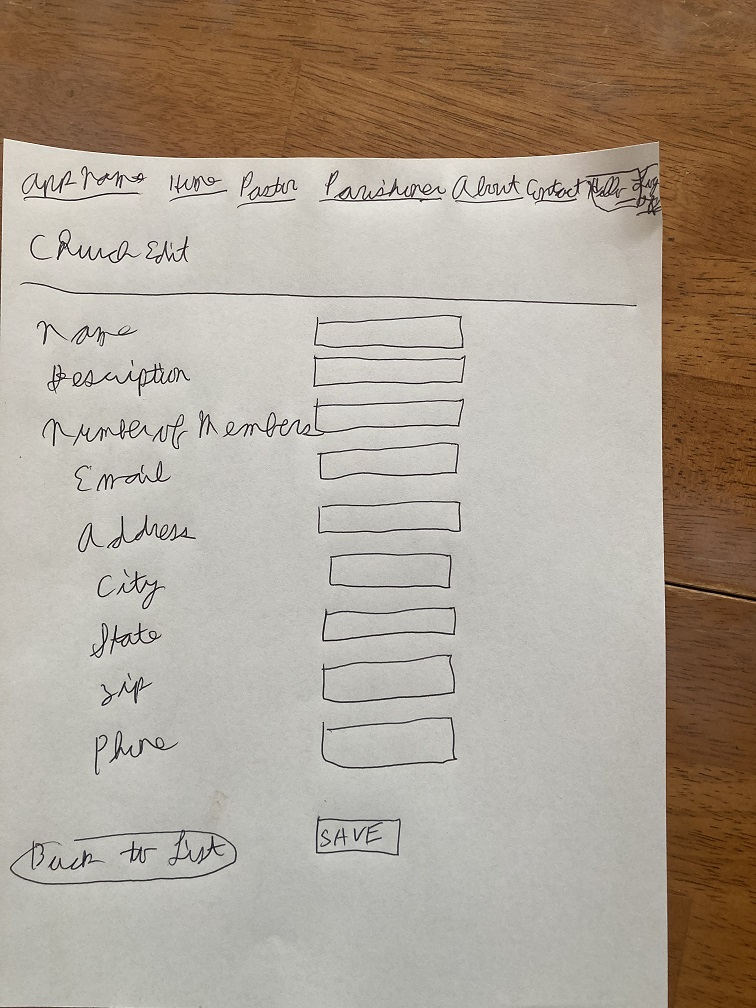 App Name Home Pastor Parishioner About Contact Hello Log
Church Edit
Name
Description
Number of Members
Email
Address
City
State
Zip
Phone
Back to List SAVE